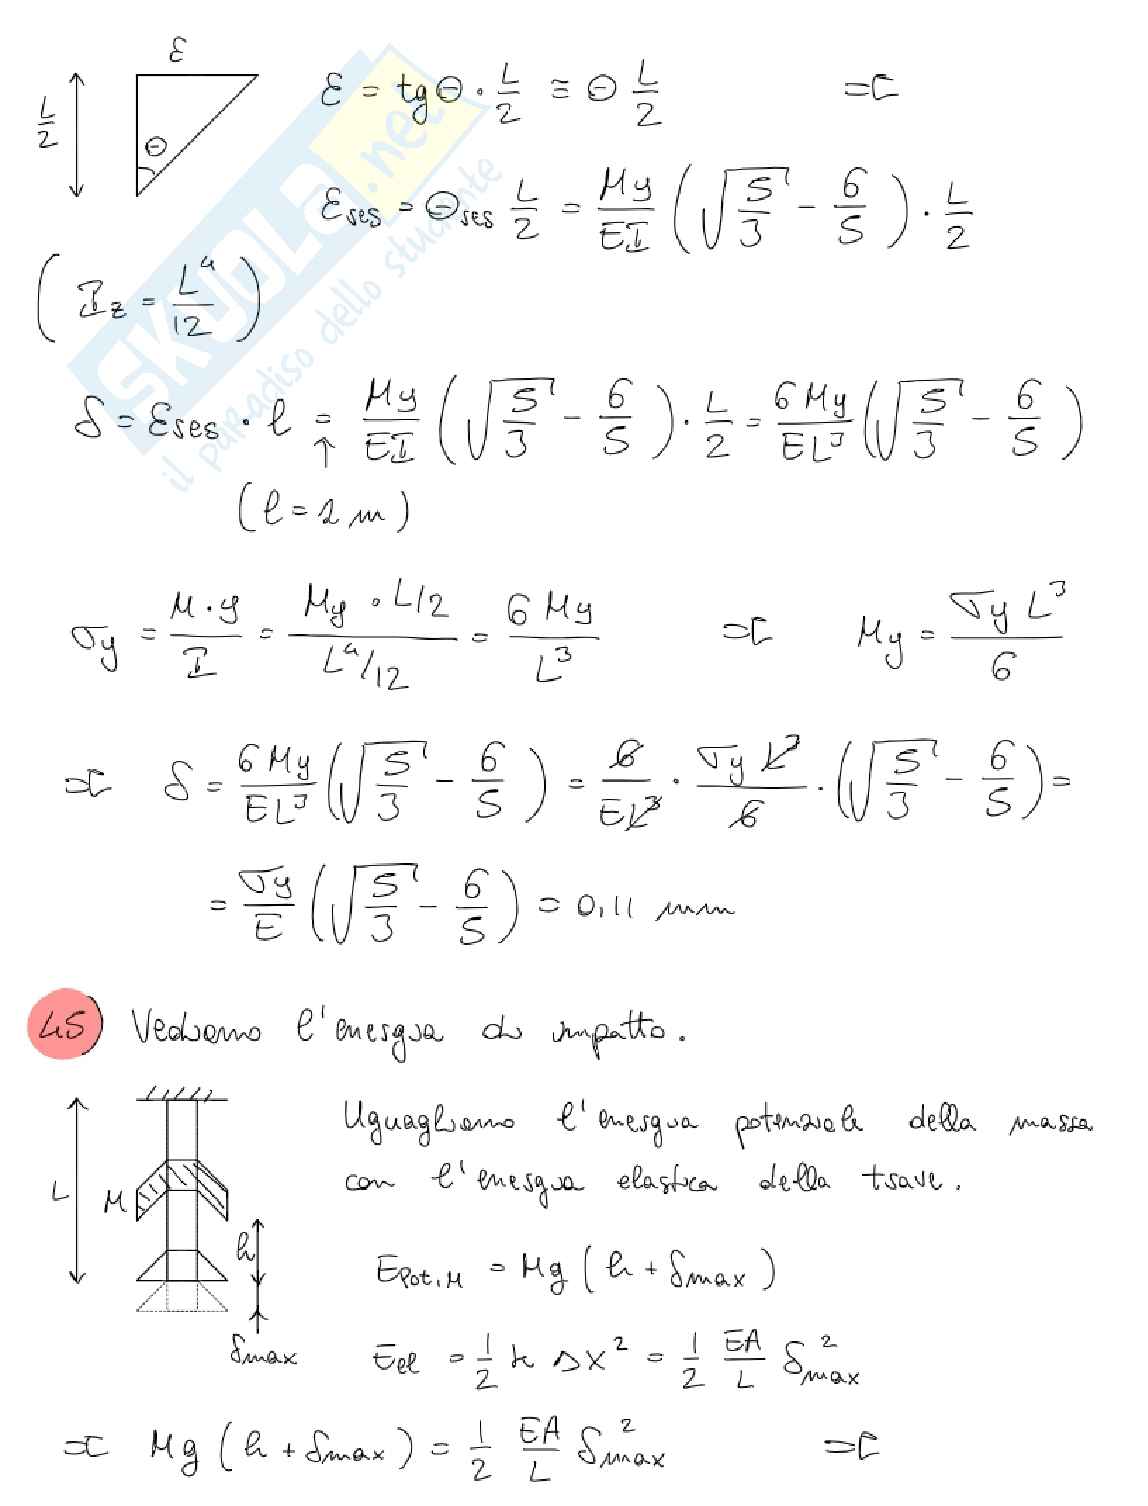 ε
L/2
Θ
ε = tgΘ · L/2 ≅ Θ L/2 ⇒
ε_res = Θ_res L/2 = My/EI (√(5/3) − 6/5) · L/2
(I_z = L⁴/12)
δ = ε_res · l = My/EI (√(5/3) − 6/5) · L/2 = 6 My/EL³ (√(5/3) − 6/5)
↑
(l = 1 m)
σy = M·y/I = My · L/2 / L⁴/12 = 6 My/L³ ⇒ My = σy L³/6
⇒ δ = 6 My/EL³ (√(5/3) − 6/5) = 6/EL³ · σy L³/6 · (√(5/3) − 6/5) =
= σy/E (√(5/3) − 6/5) = 0,11 mm
45) Vediamo l'energia di impatto.
L
M
h
δmax
Uguagliamo l'energia potenziale della massa
con l'energia elastica della trave.
E_pot,M = Mg (h + δmax)
E_el = 1/2 k Δx² = 1/2 EA/L δ²max
⇒ Mg (h + δmax) = 1/2 EA/L δ²max ⇒
SKUOLA.net
il paradiso dello studente